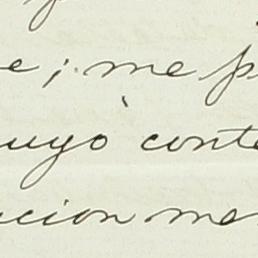 e; me p
uyò conte
acion me